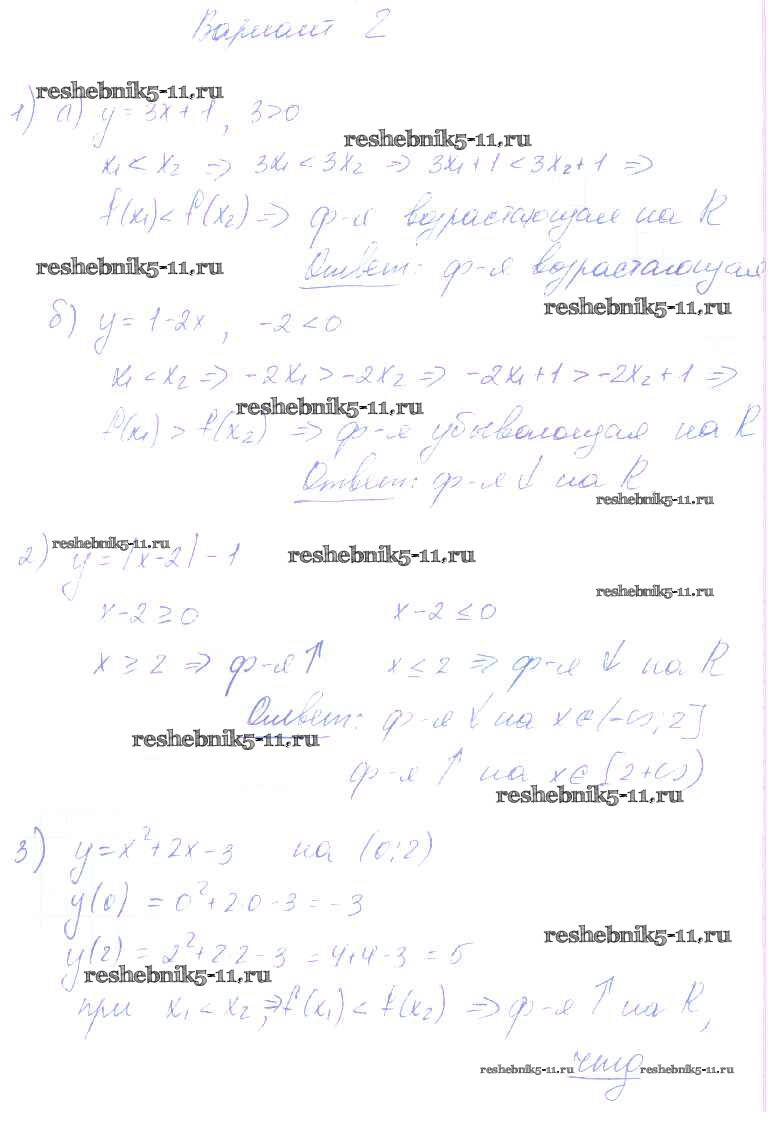 Вариант 2
reshebnik5-11.ru
1) а) y = 3x + 1, 3>0
reshebnik5-11.ru
x₁ < x₂ => 3x₁ < 3x₂ => 3x₁+1 < 3x₂+1 =>
f(x₁) < f(x₂) => ф-я возрастающая на R
reshebnik5-11.ru
Ответ: ф-я возрастающая
reshebnik5-11.ru
б) y = 1-2x, -2<0
x₁ < x₂ => -2x₁ > -2x₂ => -2x₁+1 > -2x₂+1 =>
reshebnik5-11.ru
f(x₁) > f(x₂) => ф-я убывающая на R
Ответ: ф-я ↓ на R
reshebnik5-11.ru
reshebnik5-11.ru
2) y = |x-2| - 1
reshebnik5-11.ru
reshebnik5-11.ru
x-2 ≥ 0 x-2 ≤ 0
x ≥ 2 => ф-я ↑ x ≤ 2 => ф-я ↓ на R
Ответ: ф-я ↓ на x∈(-∞; 2]
reshebnik5-11.ru
ф-я ↑ на x∈[2+∞)
reshebnik5-11.ru
3) y = x² + 2x - 3 на (0; 2)
y(0) = 0² + 2·0 - 3 = -3
reshebnik5-11.ru
y(2) = 2² + 2·2 - 3 = 4+4-3 = 5
reshebnik5-11.ru
при x₁ < x₂, => f(x₁) < f(x₂) => ф-я ↑ на R,
reshebnik5-11.ru чтд reshebnik5-11.ru